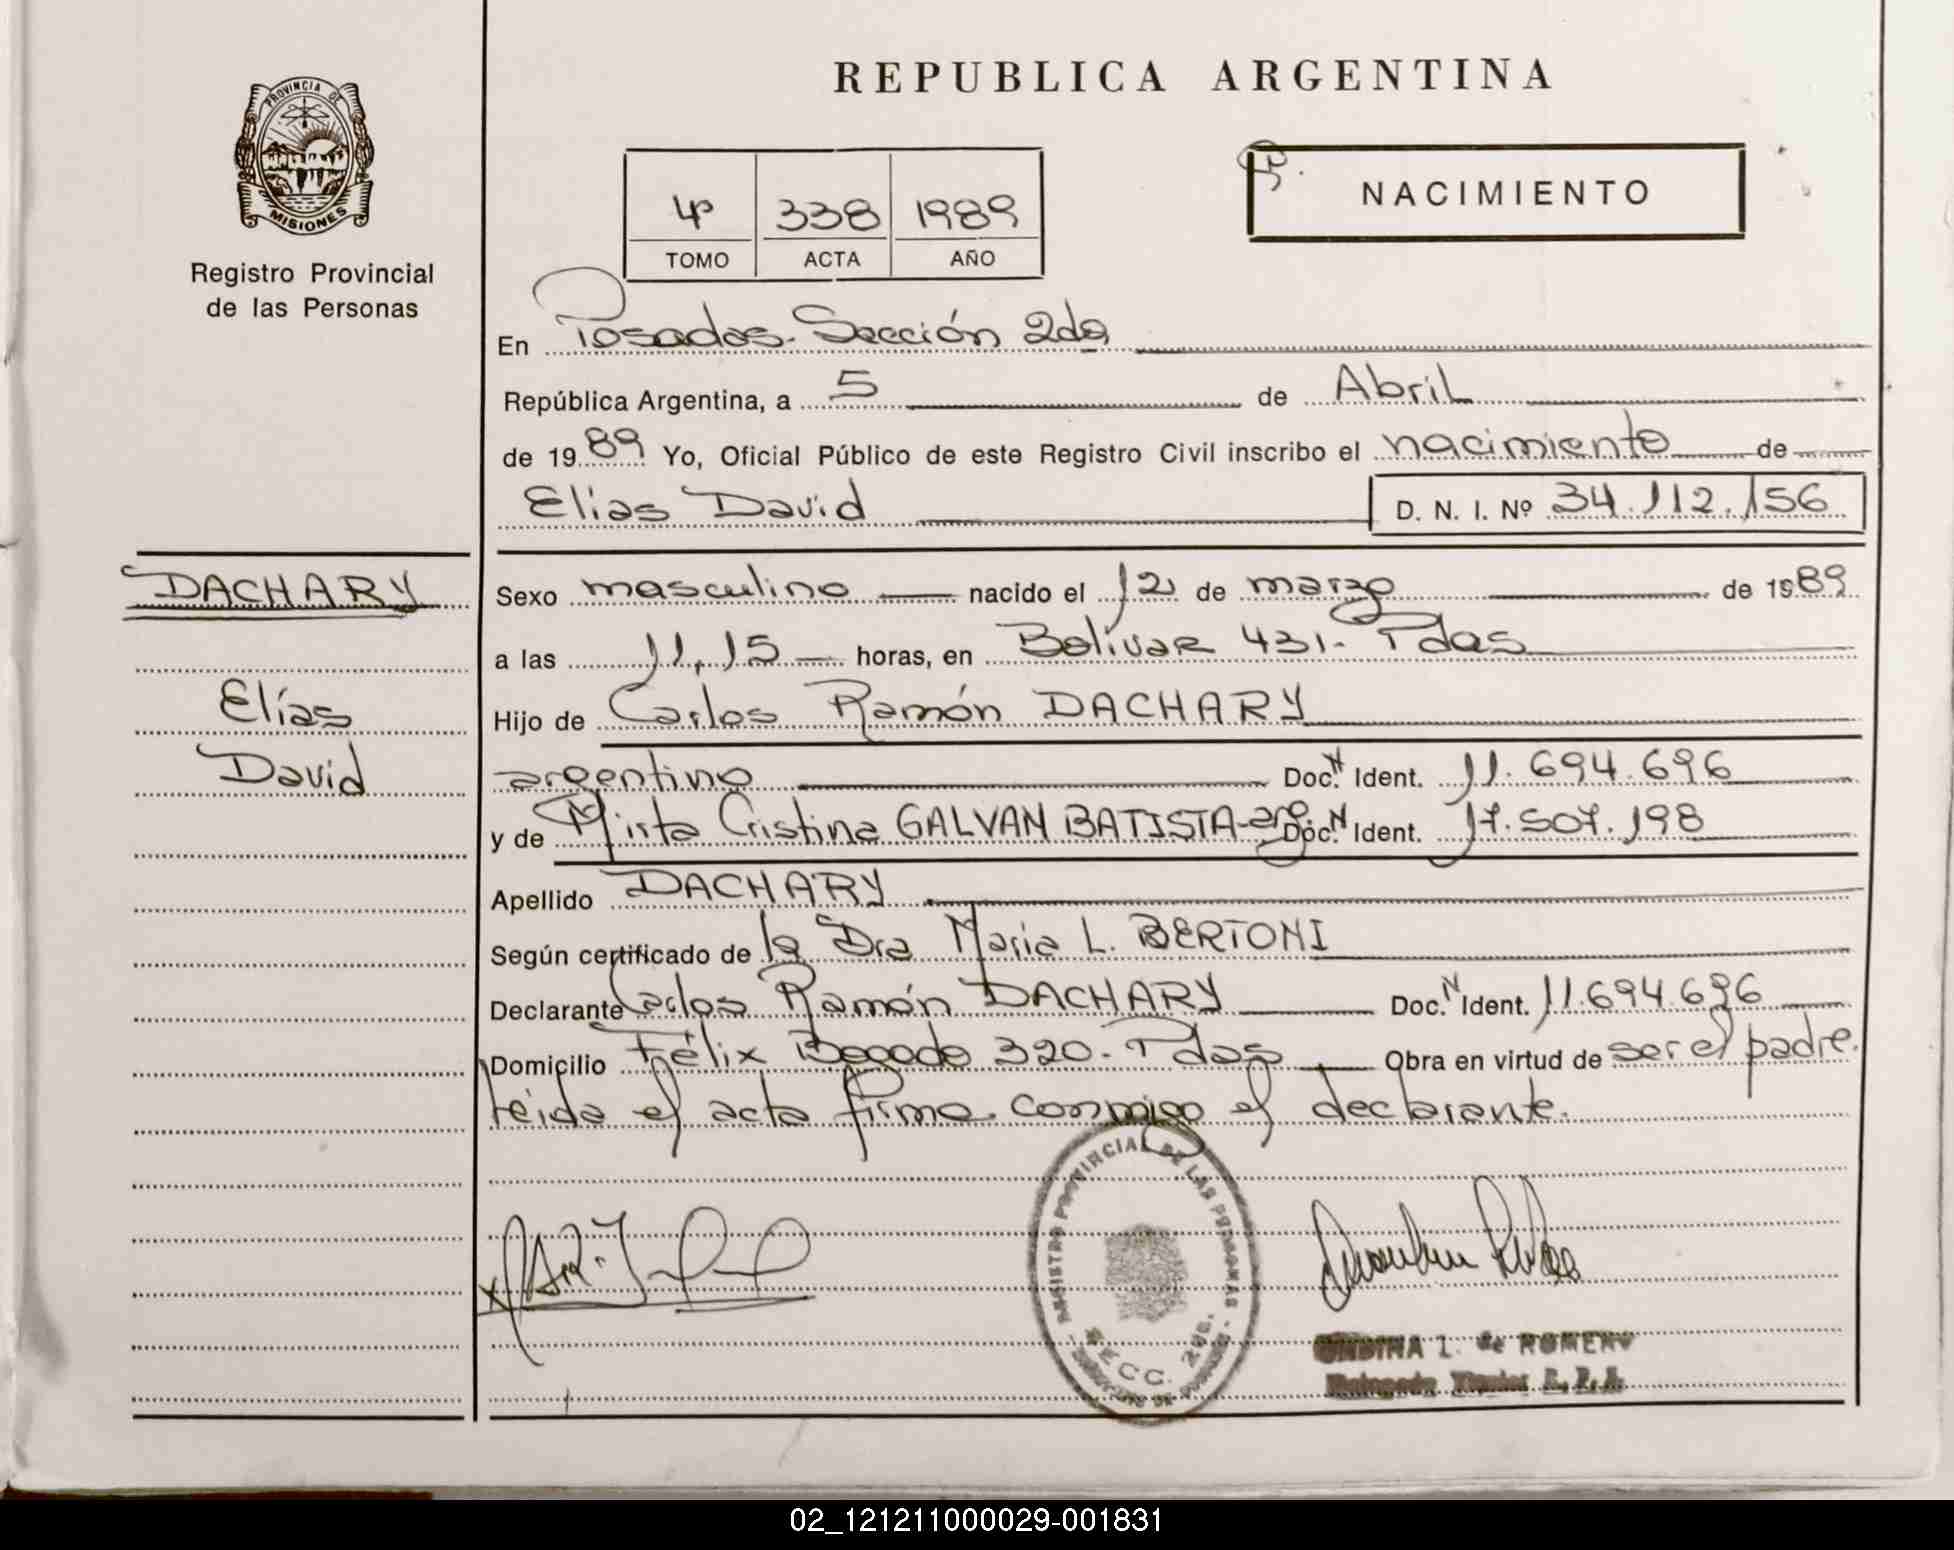 PROVINCIA DE
MISIONES
Registro Provincial
de las Personas
REPUBLICA ARGENTINA
4º 338 1989
TOMO ACTA AÑO
NACIMIENTO
En Posadas. Sección 2da
República Argentina, a 5 de Abril
de 1989 Yo, Oficial Público de este Registro Civil inscribo el nacimiento de
Elías David D. N. I. Nº 34.112.156
DACHARY
Elías
David
Sexo masculino nacido el 12 de marzo de 1989
a las 11,15 horas, en Bolívar 431- Pdas
Hijo de Carlos Ramón DACHARY
argentino Doc. N Ident. 11.694.696
y de Mirta Cristina GALVAN BATISTA-arg. Doc. N Ident. 17.507.198
Apellido DACHARY
Según certificado de la Dra Maria L. BERTONI
Declarante Carlos Ramón DACHARY Doc. N Ident. 11.694.696
Domicilio Félix Bogado 320- Pdas Obra en virtud de ser el padre.
Leida el acta firma conmigo el declarante.
REGISTRO PROVINCIAL DE LAS PERSONAS
SECC. 2da.
ONDINA I. de ROMERO
02_121211000029-001831